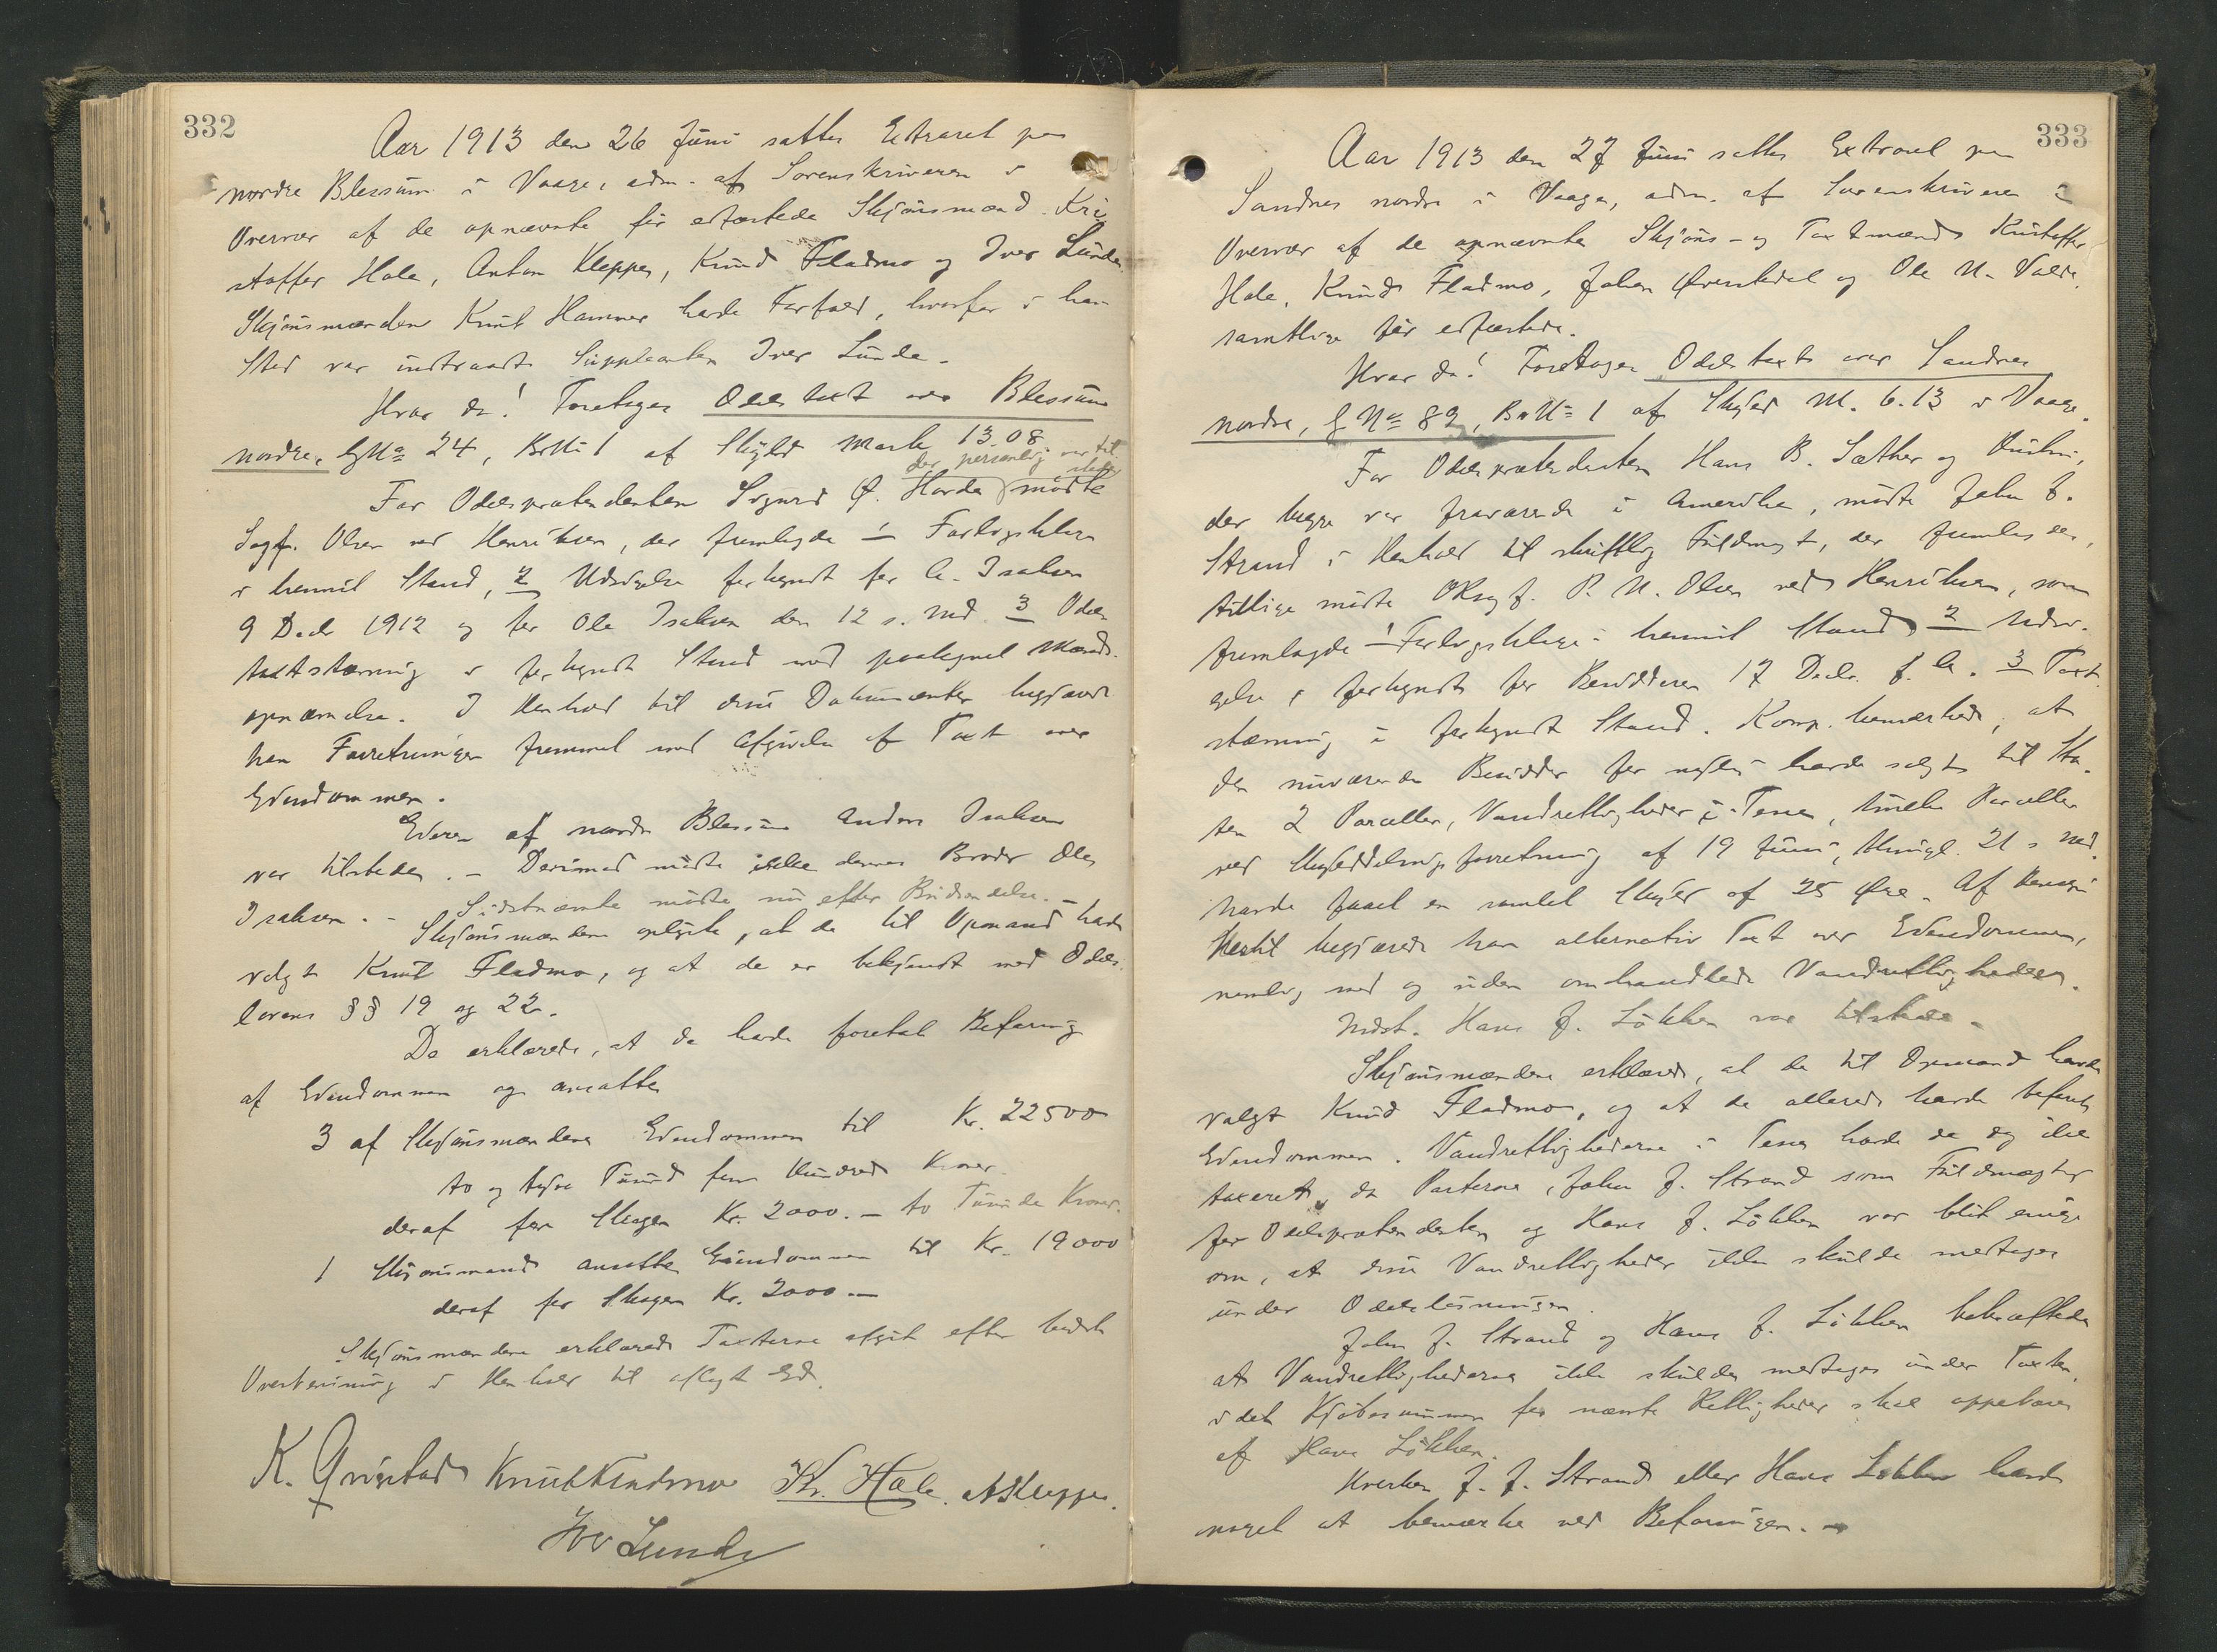 332
Aar 1913 den 26 Juni sattes Extraret paa
nordre Blessum i Vaage, adm. af Sorenskriveren i
Overvær af de opnævnte før edfæstede Skjønsmænd Kri
stoffer Hole, Anton Kleppe, Knud Fladmo og Iver Lunde.
Skjønsmanden Knut Hammer havde Forfald, hvorfor i hans
Sted var indtraadt Suppleanten Iver Lunde.
Hvor da! Foretages Odelstaxt over Blessum
nordre, GNo 24, BrNo 1 af Skyld Mark 13.08.
der personlig var til
stede
For Odelsprætendenten Sigurd Ø. Horda mødte
Sagf. Olsen ved Henriksen, der fremlagde 1 Forligsklage
i hermit Stand, 2 Udsigelse forkyndt for A. Isaksen
9 Decbr 1912 og for Ole Isaksen den 12 s. Md. 3 Odels
taxtstævning i forkyndt Stand med paategnet Mænds
opnævnelse. I Henhold til disse Dokumenter begjærede
han Forretningen fremmet med Afgivelse af Taxt over
Eiendommen.
Eieren af nordre Blessum Anders Isaksen
var tilstede. - Derimod mødte ikke dennes Broder Ole
Isaksen. - Sidstnævnte mødte nu efter Budsendelse. -
Skjønsmændene oplyste, at de til Opmand havde
valgt Knut Fladmo, og at de er bekjendt med Odels
lovens §§ 19 og 22.
De erklærede, at de havde foretat Befaring
af Eiendommen og ansatte
3 af Skjønsmændene Eiendommen til Kr. 22500
to og tyve Tusind fem Hundrede Kroner
deraf for Skogen Kr. 2000.- to Tusinde Kroner.
1 Skjønsmand ansatte Eiendommen til Kr. 19000
deraf for Skogen Kr. 2000.-
Skjønsmændene erklærede Taxterne afgit efter bedste
Overbevisning i Henhold til aflagt Ed.
K. Qvigstad Knut Fladmo Kr. Hole. A Kleppe.
Iver Lunde
333
Aar 1913 den 27 Juni sattes Extraret paa
Sandnes nordre i Vaage, adm. af Sorenskriveren i
Overvær af de opnævnte Skjøns- og Taxtmænd Kristoffer
Hole, Knud Fladmo, Johan Øvrestedal og Ole N. Volde,
samtlige før edfæstede.
Hvor da! Foretages Odelstaxt over Sandnes
nordre, GNo 89, BrNo 1 af Skyld M. 6.13 i Vaage.
For Odelsprætendenten Hans B. Sæther og Hustru,
der begge var fraværende i Amerika, mødte John J.
Strand i Henhold til skriftlig Fuldmagt, der fremlagdes,
tillige mødte ORsagf. P. N. Olsen ved Henriksen, som
fremlagde 1 Forligsklage i hermit Stand 2 Udsi-
gelse, forkyndt for Besidderen 17 Decbr. f. A. 3 Taxt
stævning i forkyndt Stand. Komp. bemærkede, at
den nuværende Besidder for nylig havde solgt til Sta
ten 2 Parceller, Vandrettigheder i Tessa, hvilke Parceller
ved Skylddelingsforretning af 19 Juni, thingl. 21 s Md.
havde faaet en samlet Skyld af 25 Øre. Af Hensyn
hertil begjærede han alternativ Taxt over Eiendommen,
nemlig med og uden omhandlede Vandrettigheder.
Indst. Hans J. Løkken var tilstede.
Skjønsmændene erklærede, at de til Opmand havde
valgt Knud Fladmo, og at de allerede havde befaret
Eiendommen. Vandrettighederne i Tessa havde de dog ikke
taxeret, da Parterne, John J. Strand som Fuldmægtig
for Odelsprætendenten og Hans J. Løkken var blit enige
om, at disse Vandrettigheder ikke skulde medtages
under Odelsløsningen.
John J. Strand og Hans J. Løkken bekræftede
at Vandrettighederne ikke skulde medtages under Taxten,
idet Kjøbesummen for nævnte Rettigheder skal oppebæres
af Hans Løkken.
Hverken J. J. Strand eller Hans Løkken havde
noget at bemærke ved Befaringen. -